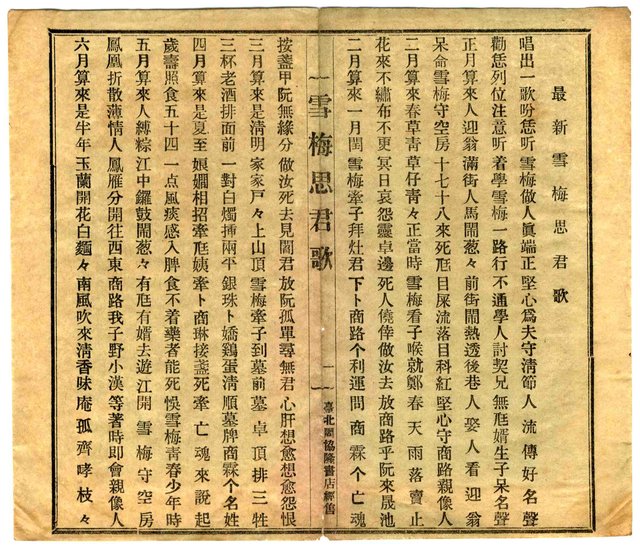 最新雪梅思君歌
唱出一歌吩恁听 雪梅做人真端正 堅心爲夫守清節 人流傳好名聲
勸恁列位注意听 着學雪梅一路行 不通學人討契兄 無尫婿生子呆名聲
正月算來人迎翁 滿街人馬鬧葱々 前街鬧熱透後巷 人娶人看迎翁
呆命雪梅守空房 十七十八來死尫 目屎流落目科紅 堅心守商路親像人
二月算來春草青 草仔青々正當時 雪梅看子喉就鄭 春天雨落賣止
花來不繡布不更 冥日哀怨靈卓邊 死人僥倖做汝去 放商路乎阮來晟池
二月算來一月閏 雪梅牽子拜灶君 下卜商路个利運 問商霖个亡魂
一雪梅思君歌
一
臺北
協隆書店經售
按盞甲阮無緣分 做汝死去見閻君 放阮孤單尋無君 心肝想愈想愈怨恨
三月算來是清明 家家戸々上山頂 雪梅牽子到墓前 墓卓頂排三牲
三杯老酒排面前 一對白燭插兩平 銀珠卜嬌鷄蛋清 順墓牌商霖个名姓
四月算來是夏至 娘嫺相招牽尫姨 牽卜商琳接盞死 牽亡魂來說起
歲壽照食五十四 一点風痰感入脾 食不着藥者能死 悞雪梅青春少年時
五月算來人縛粽 江中鑼鼓鬧葱々 有尫有婿去遊江 開雪梅守空房
鳳凰折散薄情人 鳳雁分開往西東 商路我子野小漢 等著時即會親像人
六月算來是半年 玉蘭開花白麵々 南風吹來清香味 庵孤齊哮枝々